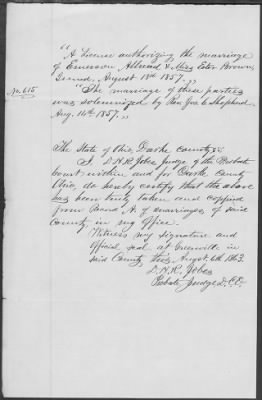 "A License authorizing the marriage
of Emerson Allread & Miss Ester Brown,
Issued, August 13th 1857.,,
No. 615
"The marriage of these parties
was solemnized by Rev. Jos. C. Shepherd,
Aug. 14th 1857.,,
The State of Ohio, Darke county ss.
I, D. H. R. Jobes, Judge of the Probate
Court within and for Darke County
Ohio, do hereby certify that the above
has been truly taken and copied
from Record A. of marriages, of said
County in my office.
Witness my signature and
Official seal at Greenville in
said County, this, August. 6th 1863.
D. H. R. Jobes
Probate Judge D.C.O.